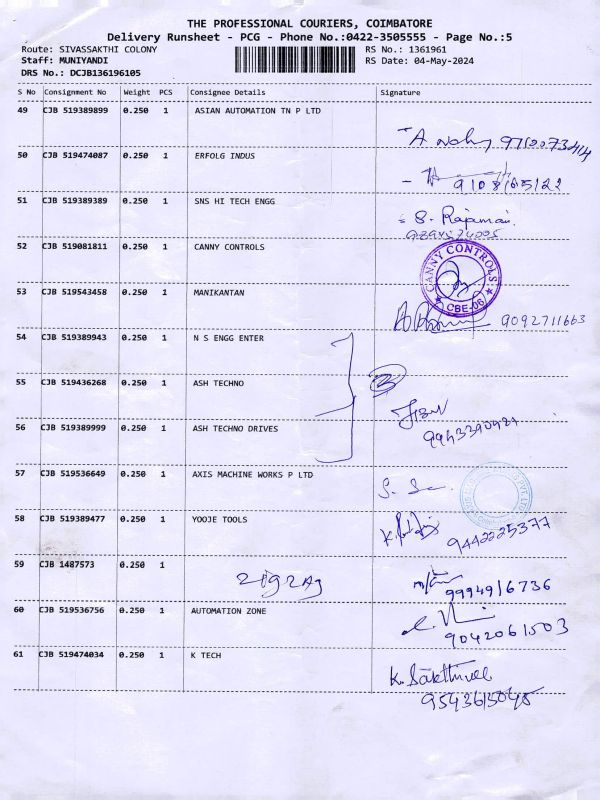 THE PROFESSIONAL COURIERS, COIMBATORE
Delivery Runsheet - PCG - Phone No.:0422-3505555 - Page No.:5
Route: SIVASSAKTHI COLONY RS No.: 1361961
Staff: MUNIYANDI RS Date: 04-May-2024
DRS No.: DCJB136196105
S No Consignment No Weight PCS Consignee Details Signature
49 CJB 519389899 0.250 1 ASIAN AUTOMATION TN P LTD
50 CJB 519474087 0.250 1 ERFOLG INDUS
51 CJB 519389389 0.250 1 SNS HI TECH ENGG
S. Rajamai
52 CJB 519081811 0.250 1 CANNY CONTROLS
CANNY CONTROLS
CBE-06
53 CJB 519543458 0.250 1 MANIKANTAN
9092711663
54 CJB 519389943 0.250 1 N S ENGG ENTER
55 CJB 519436268 0.250 1 ASH TECHNO
3
56 CJB 519389999 0.250 1 ASH TECHNO DRIVES
57 CJB 519536649 0.250 1 AXIS MACHINE WORKS P LTD
58 CJB 519389477 0.250 1 YOOJE TOOLS
9442225377
59 CJB 1487573 0.250 1 zigzag
9994916736
60 CJB 519536756 0.250 1 AUTOMATION ZONE
9042061503
61 CJB 519474034 0.250 1 K TECH
K. Sakthivel
9543615045